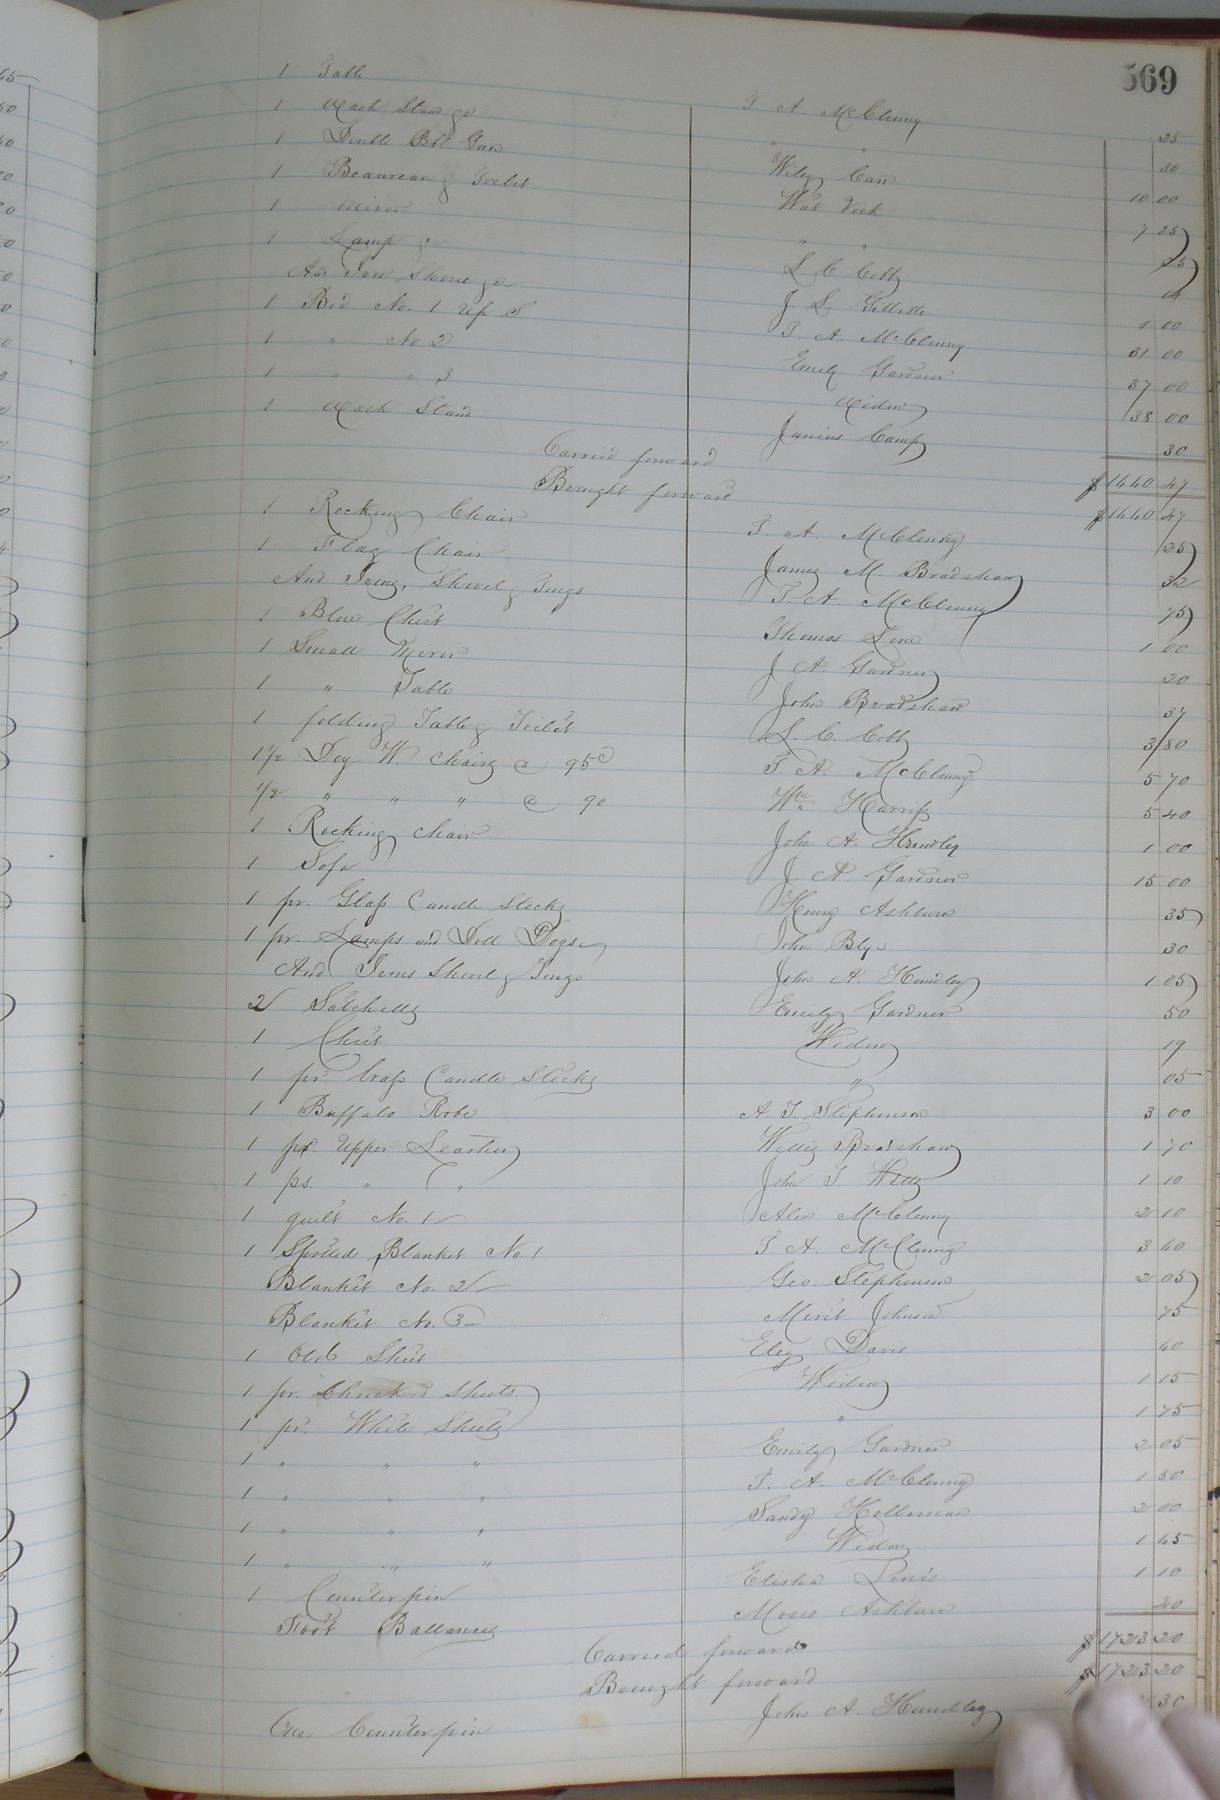 569
1 Table T A McClenny 25
1 Wash Stand &c " " 30
1 Double Bbl Gun Wiley Carr 10 00
1 Beaureau & Toilet Wat Vick 7 25
1 Miror " " 25
1 Lamp &c L C Cobb 14
And Iron Shovel &c J L Gillette 1 00
1 Bed No. 1 Up S. T A McClenny 31 00
1 " No 2 Emily Gardner 37 00
1 " " 3 Widow 38 00
1 Wash Stand Junius Camp 30
Carried forward $1440 47
Brought forward $1440 47
1 Rocking Chair T. A. McClenny 25
1 Flag Chair James M. Bradshaw 32
And Irons, Shovel & Tongs T. A McClenny 75
1 Blue Chest Thomas Line 1 00
1 Small Miror J A. Gardner 20
1 " Table John Bradshaw 37
1 folding Table & Toilet L. C. Cobb 3 80
1/2 Doz W. Chairs @ 95c T A. McClenny 5 70
1/2 " " " @ 90 Wm Harriss 5 40
1 Rocking chair John A. Hundley 1 00
1 Sofa J. A. Gardner 15 00
1 pr. Glass Candle Sticks Henry Ashburn 35
1 pr. Lamps and Doll Dogs John Blye 30
And Irons Shovel & Tongs John A. Hundley 1 05
2 Satchells Emily Gardner 50
1 Chest Widow 19
1 pr. brass Candle Sticks " 05
1 Buffalo Robe A. T. Stephenson 3 00
1 ps. Upper Leather Willis Bradshaw 1 70
1 ps. " " John T 1 10
1 quilt No. 1 Alex McClenny 2 10
1 Spotted Blanket No. 1 T. A. McClenny 3 60
Blanket No. 2 Geo. Stephenson 2 05
Blanket No. 3 Merit Johnson 75
1 Old Sheet Eley Davis 60
1 pr. Checked Sheets Widow 1 15
1 pr. White Sheets " 1 75
1 " " " Emily Gardner 2 05
1 " " " T. A. McClenny 1 50
1 " " " Sandy Holleman 2 00
1 " " " Widow 1 65
1 Counterpin Elisha Lewis 1 10
Foot Ballances Moses Ashburn 20
Carried forward $1723 20
Brought forward $1723 20
One Counterpin John A. Hundley 30